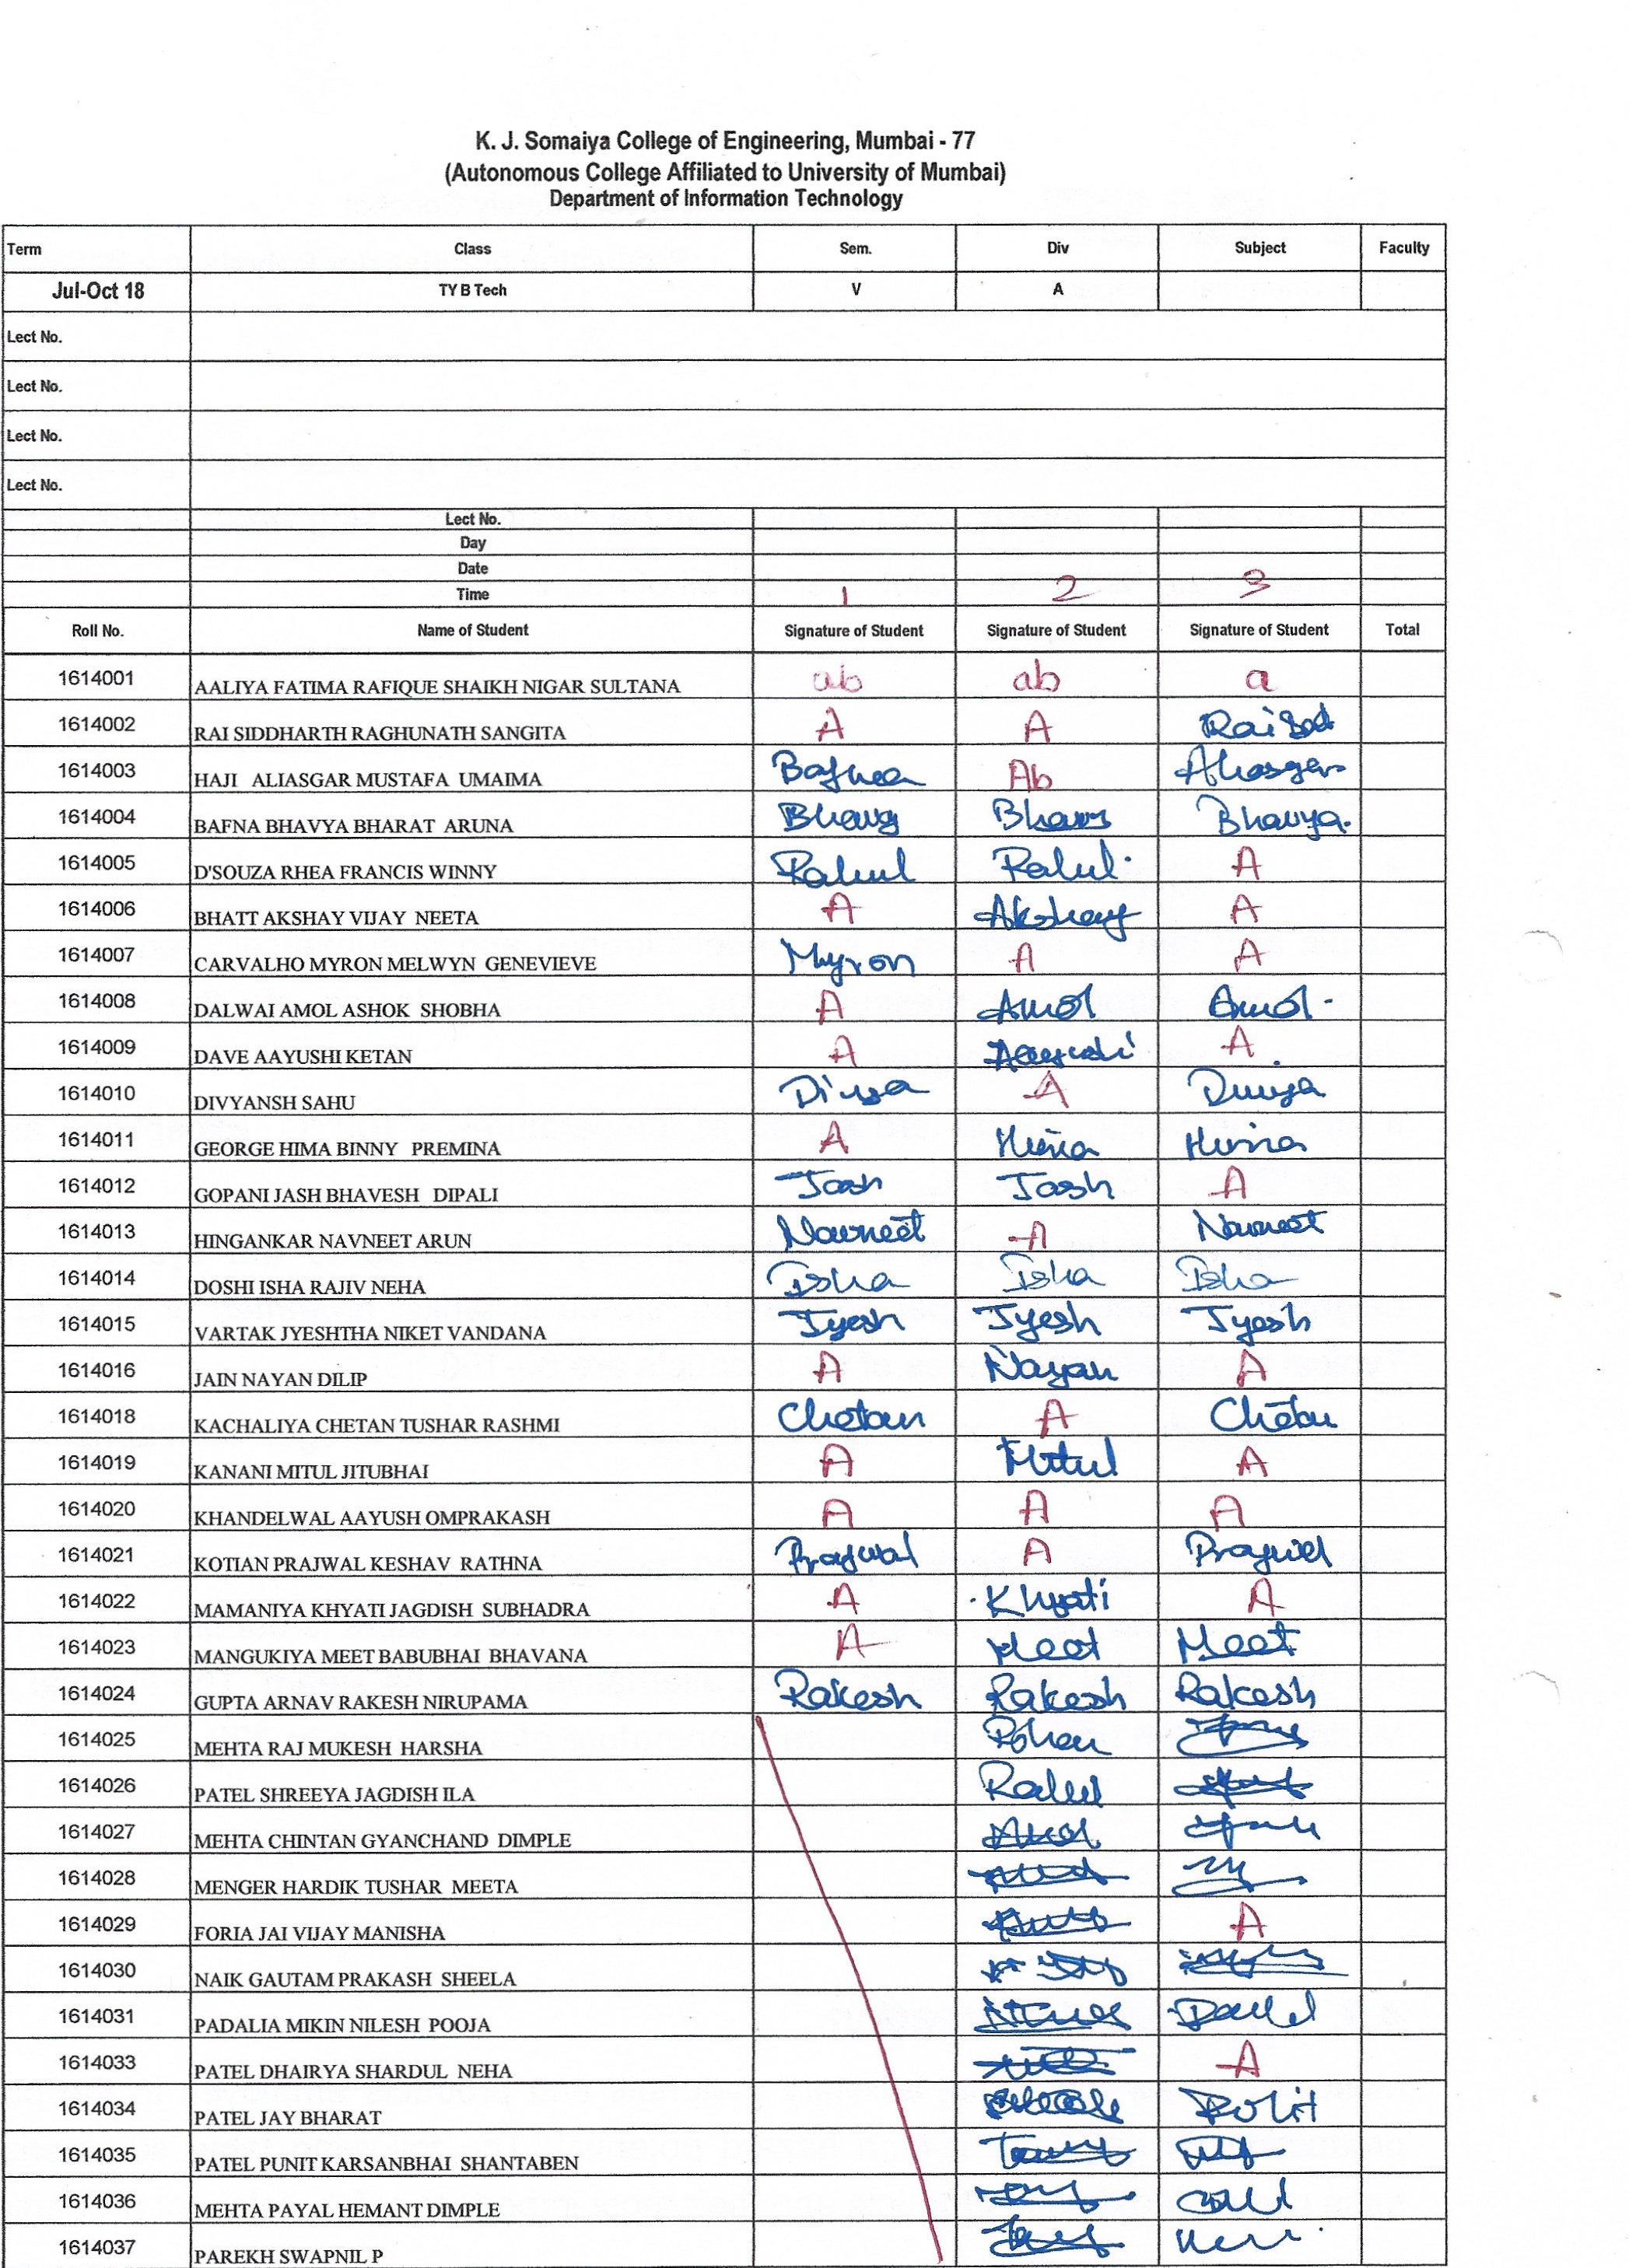 K. J. Somaiya College of Engineering, Mumbai - 77
(Autonomous College Affiliated to University of Mumbai)
Department of Information Technology
Term Class Sem. Div Subject Faculty
Jul-Oct 18 TY B Tech V A
Lect No.
Lect No.
Lect No.
Lect No.
Lect No.
Day
Date
Time 1 2 3
Roll No. Name of Student Signature of Student Signature of Student Signature of Student Total
1614001 AALIYA FATIMA RAFIQUE SHAIKH NIGAR SULTANA ab ab a
1614002 RAI SIDDHARTH RAGHUNATH SANGITA A A
1614003 HAJI ALIASGAR MUSTAFA UMAIMA Ab
1614004 BAFNA BHAVYA BHARAT ARUNA Bhavya.
1614005 D'SOUZA RHEA FRANCIS WINNY Rahul Rahul. A
1614006 BHATT AKSHAY VIJAY NEETA A Akshay A
1614007 CARVALHO MYRON MELWYN GENEVIEVE Myron A A
1614008 DALWAI AMOL ASHOK SHOBHA A Amol Amol.
1614009 DAVE AAYUSHI KETAN A A
1614010 DIVYANSH SAHU A
1614011 GEORGE HIMA BINNY PREMINA A Hima Hima
1614012 GOPANI JASH BHAVESH DIPALI Jash Jash A
1614013 HINGANKAR NAVNEET ARUN Navneet A Navneet
1614014 DOSHI ISHA RAJIV NEHA Isha Isha Isha
1614015 VARTAK JYESHTHA NIKET VANDANA Jyesh Jyesh Jyesh
1614016 JAIN NAYAN DILIP A Nayan A
1614018 KACHALIYA CHETAN TUSHAR RASHMI Chetan A
1614019 KANANI MITUL JITUBHAI A Mitul A
1614020 KHANDELWAL AAYUSH OMPRAKASH A A A
1614021 KOTIAN PRAJWAL KESHAV RATHNA Prajwal A
1614022 MAMANIYA KHYATI JAGDISH SUBHADRA A Khyati A
1614023 MANGUKIYA MEET BABUBHAI BHAVANA A Meet Meet
1614024 GUPTA ARNAV RAKESH NIRUPAMA Rakesh Rakesh Rakesh
1614025 MEHTA RAJ MUKESH HARSHA
1614026 PATEL SHREEYA JAGDISH ILA
1614027 MEHTA CHINTAN GYANCHAND DIMPLE
1614028 MENGER HARDIK TUSHAR MEETA
1614029 FORIA JAI VIJAY MANISHA A
1614030 NAIK GAUTAM PRAKASH SHEELA
1614031 PADALIA MIKIN NILESH POOJA
1614033 PATEL DHAIRYA SHARDUL NEHA A
1614034 PATEL JAY BHARAT
1614035 PATEL PUNIT KARSANBHAI SHANTABEN
1614036 MEHTA PAYAL HEMANT DIMPLE
1614037 PAREKH SWAPNIL P